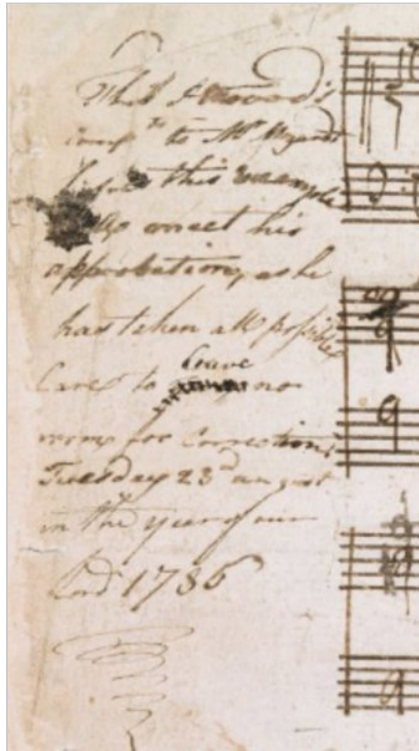 Thos Attwood's
compts to Mr Mozart
hopes this Example
meet his
approbation, as he
has taken all possible
Care to leave no
rome for Correction,
Tuesday 23d august
in the year of our
Lord 1785